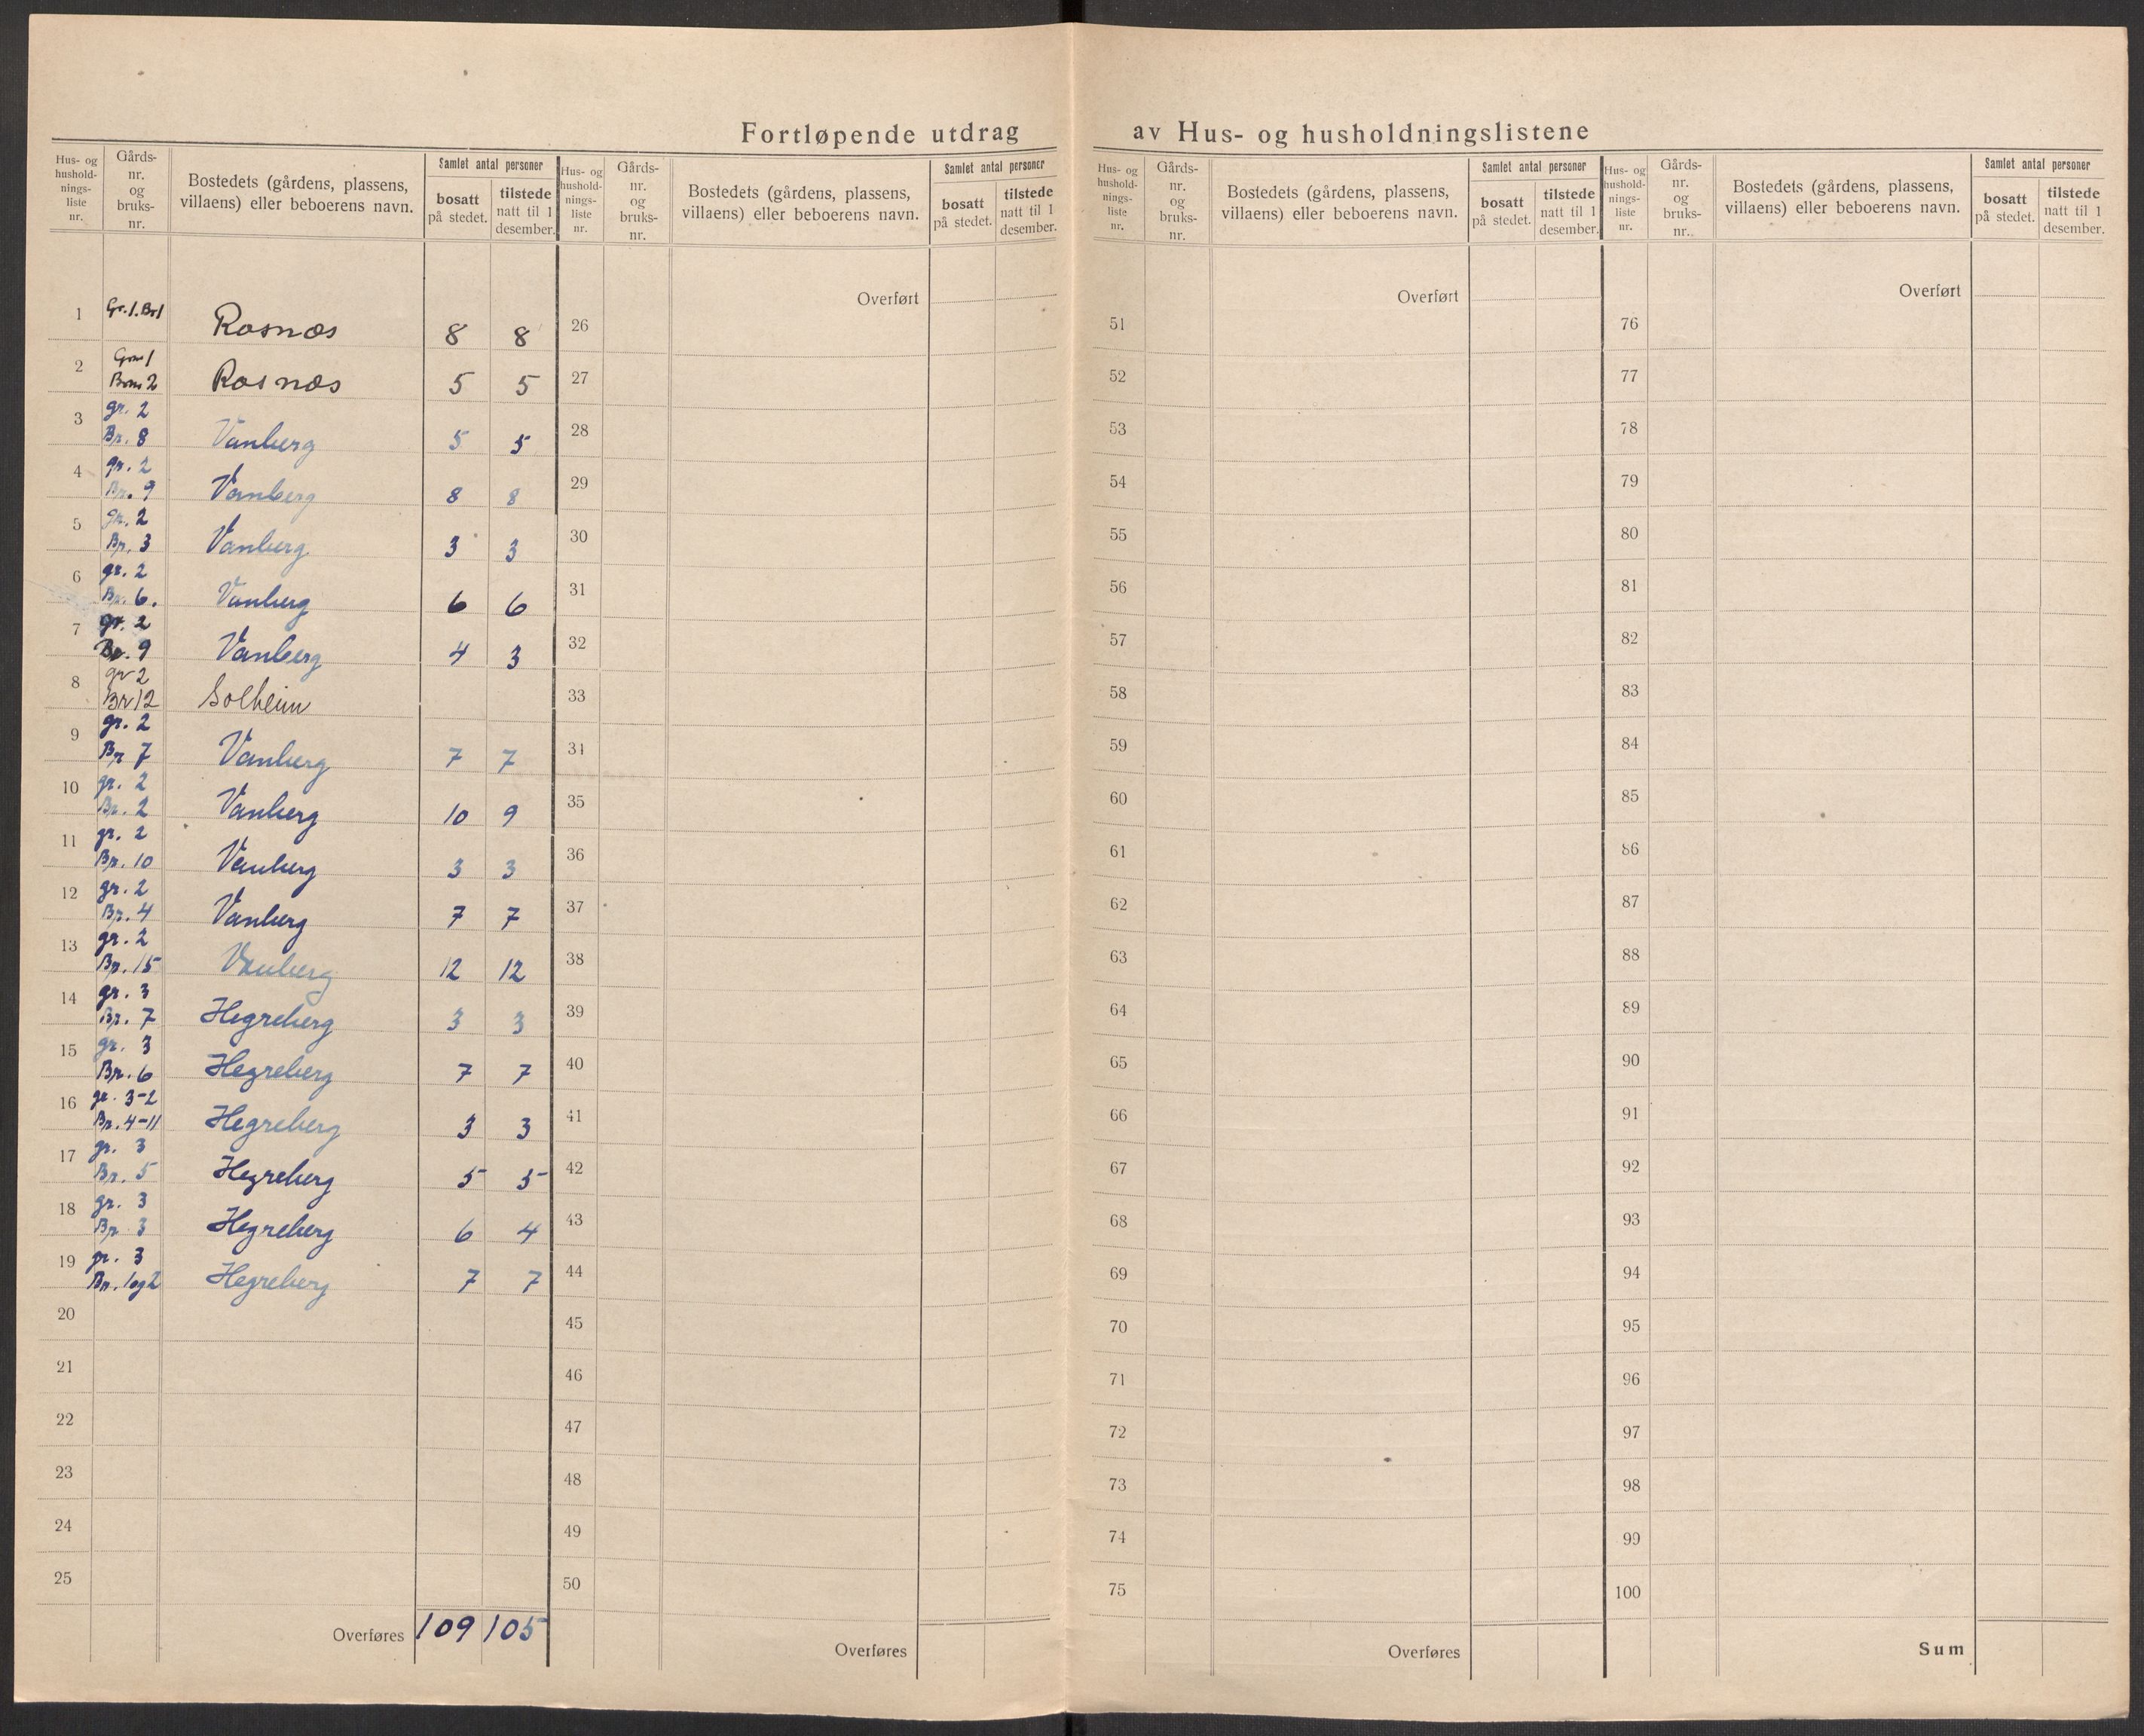 Fortløpende utdrag av Hus- og husholdningslistene
Hus- og hushold- nings- liste nr. | Gårds- nr. og bruks- nr. | Bostedets (gårdens, plassens, villaens) eller beboerens navn. | Samlet antal personer | bosatt på stedet. | tilstede natt til 1 desember.
Hus- og hushold- nings- liste nr. | Gårds- nr. og bruks- nr. | Bostedets (gårdens, plassens, villaens) eller beboerens navn. | Samlet antal personer | bosatt på stedet. | tilstede natt til 1 desember.
Hus- og hushold- nings- liste nr. | Gårds- nr. og bruks- nr. | Bostedets (gårdens, plassens, villaens) eller beboerens navn. | Samlet antal personer | bosatt på stedet. | tilstede natt til 1 desember.
Hus- og hushold- nings- liste nr. | Gårds- nr. og bruks- nr.. | Bostedets (gårdens, plassens, villaens) eller beboerens navn. | Samlet antal personer | bosatt på stedet. | tilstede natt til 1 desember.
1 Gr. 1. Br 1 Rosnæs 8 8
2 Gnr 1 Brnr 2 Rosnæs 5 5
3 gr. 2 Br. 8 Vanberg 5 5
4 gr. 2 Br. 9 Vanberg 8 8
5 gr. 2 Br. 3 Vanberg 3 3
6 gr. 2 Br. 6. Vanberg 6 6
7 gr. 2 Br. 9 Vanberg 4 3
8 gr 2 Br 12 Solheim
9 gr. 2 Br 7 Vanberg 7 7
10 gr. 2 Br. 2 Vanberg 10 9
11 gr. 2 Br. 10 Vanberg 3 3
12 gr. 2 Br. 4 Vanberg 7 7
13 gr. 2 Br. 15 Vanberg 12 12
14 gr. 3 Br. 7 Hegreberg 3 3
15 gr. 3 Br. 6 Hegreberg 7 7
16 gr. 3-2 Br. 4-11 Hegreberg 3 3
17 gr. 3 Br. 5 Hegreberg 5 5
18 gr. 3 Br 3 Hegreberg 6 4
19 gr. 3 Br. 1 og 2 Hegreberg 7 7
20
21
22
23
24
25
Overføres 109 105
Overført
26
27
28
29
30
31
32
33
31
35
36
37
38
39
40
41
42
43
44
45
46
47
48
49
50
Overføres
Overført
51
52
53
54
55
56
57
58
59
60
61
62
63
64
65
66
67
68
69
70
71
72
73
74
75
Overføres
Overført
76
77
78
79
80
81
82
83
84
85
86
87
88
89
90
91
92
93
94
95
96
97
98
99
100
Sum